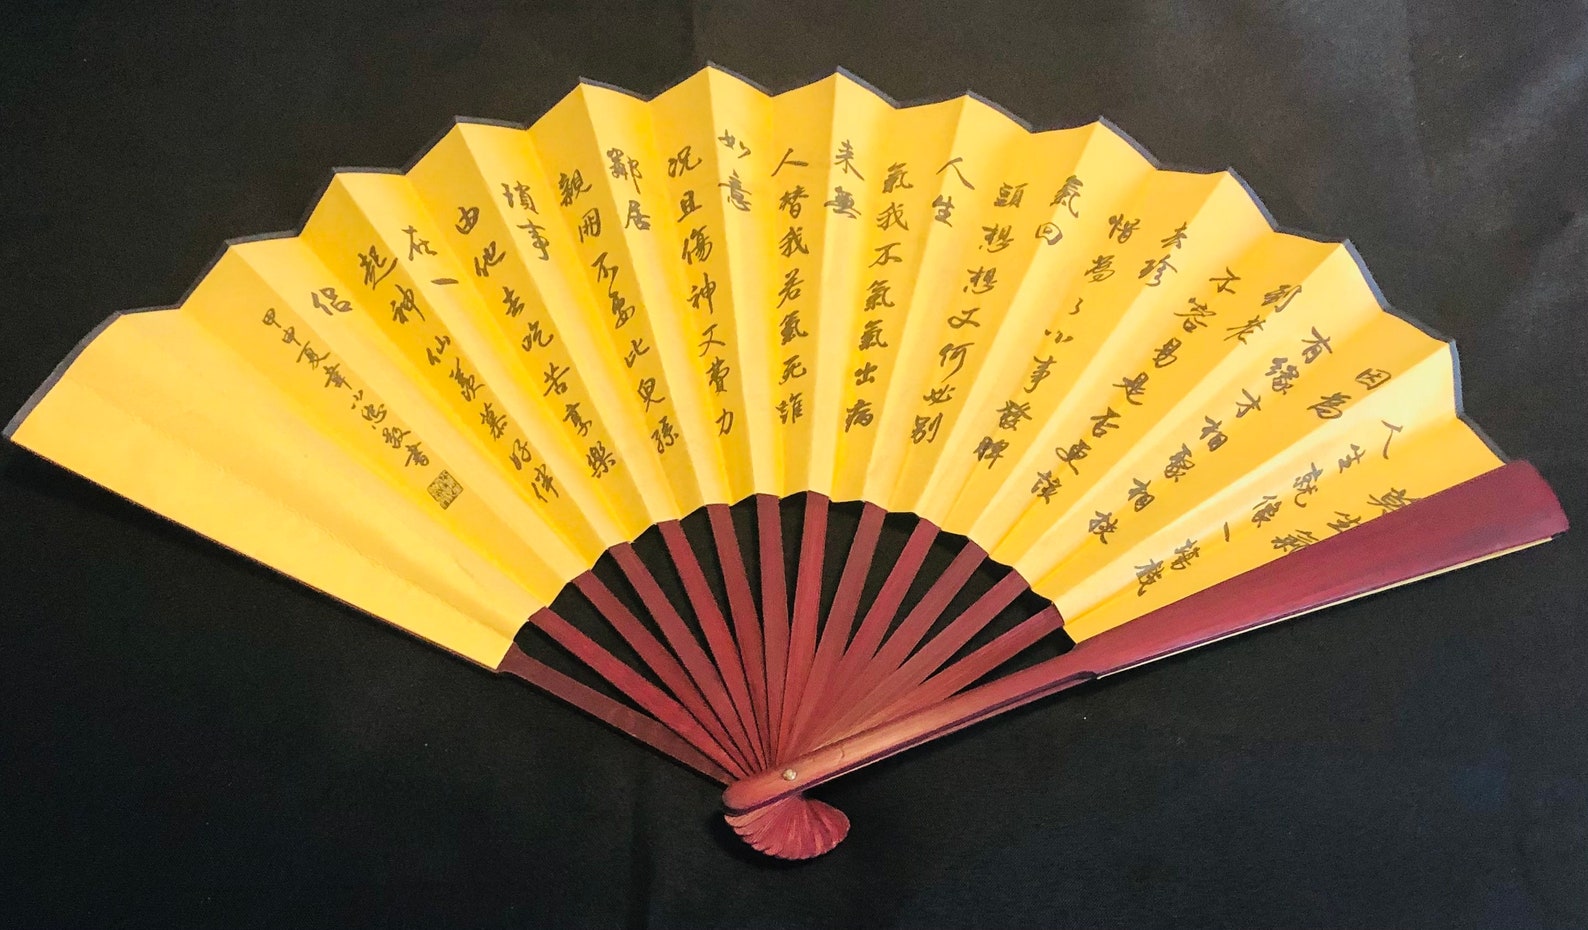 莫生氣
人生就像一場戲
因為
有緣才相聚相扶
到老
不容易是否更該
去珍
惜為了小事發脾
氣回
頭想想又何必別
人生
氣我不氣氣出病
来無
人替我若氣死誰
如意
況且傷神又費力
鄰居
親朋不要比兒孫
瑣事
由他去吃苦享樂
在一
起神仙羨慕好伴
侶
甲申夏 小忠敬書